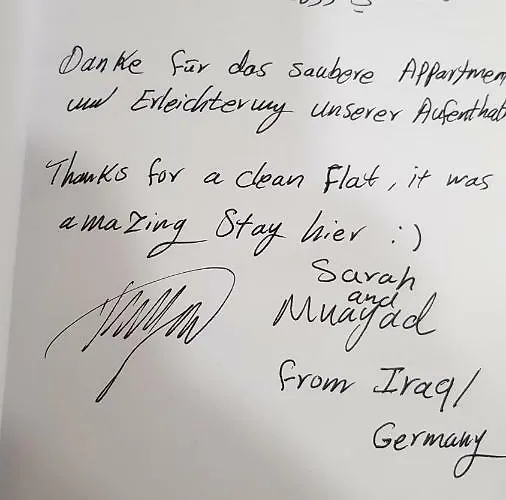 Danke für das saubere Appartmen
und Erleichterung unserer Aufenthalt
Thanks for a clean Flat, it was
amazing Stay hier :)
Sarah
and
Muayad
from Iraq/
Germany